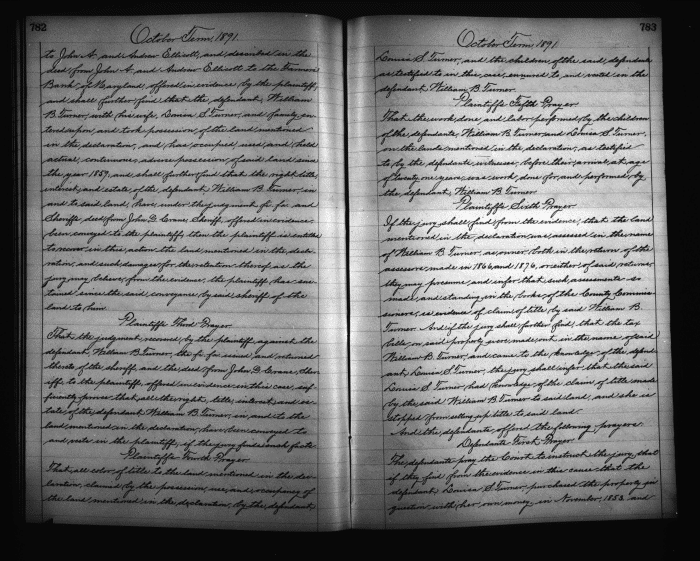 782
October Term, 1891.
to John A. and Andrew Ellicott, and described in the
deed from John A. and Andrew Ellicott, to the Farmers
Bank, of Maryland, offered in evidence, by the plaintiff,
and shall further find that the defendant, William
B. Turner, with his wife, Louisa S. Turner, and family en-
tered upon, and took possession, of the land mentioned
in the declaration, and has occupied, used, and held
actual, continuous, adverse possession, of said land since
the year 1857, and shall further find that the right, title,
interest, and estate, of the defendant, William B. Turner, in
and to said land, have, under the judgment, fi. fa. and
Sheriff's deed from John D. Crane, Sheriff, offered in evidence,
been conveyed to the plaintiff, then the plaintiff is entitled
to recover in this action the land mentioned in the decla-
ration, and such damages for the retention thereof as the
jury may believe, from the evidence, the plaintiff has sus-
tained since the said conveyance, by said sheriff of the
land to him
Plaintiffs Third Prayer
That the judgment recovered by the plaintiff against the
defendant, William B. Turner, the fi. fa. issued and returned
thereto of the sheriff, and the deed from John D. Crane, Sher-
iff, to the plaintiff, offered in evidence in this case, suf-
ficiently proves that all the right, title, interest, and es-
tate, of the defendant William B. Turner, in, and to the
land, mentioned in the declaration, have been conveyed to
and vests in the plaintiff, if the jury finds such facts
Plaintiffs Fourth Prayer
That, all color, of title to the land mentioned in the dec-
laration, claimed by the possession, use, and occupancy of
the land, mentioned in the declaration, by the defendant
783
October Term, 1891.
Louisa S. Turner, and the children, of the said, defendants
as testified to in this case, enured to and vested in the
defendant, William B. Turner.
Plaintiffs Fifth Prayer
That the work, done and labor performed, by the children
of the defendants, William B. Turner, and Louisa S. Turner,
on the lands mentioned in the declaration, as testified
to by the defendants, witnesses, before their arrival, at age
of twenty one years, was work done for, and performed by,
the defendant, William B. Turner.
Plaintiffs Sixth Prayer
If the jury shall find, from the evidence, that the land
mentioned in the declaration, was assessed in the name
of William B. Turner, as owner, both in the return, of the
assessors made in 1866, and 1876, or either of said returns,
they may presume and infer, that such assessments so
made, and standing in the books, of the County Commis-
sioners, is evidence of claim of title, by said William B.
Turner. And if the jury shall further find, that the tax
bills, on said property were, made out, in the name of said
William B. Turner, and came to the knowledge, of the defend-
ant, Louisa S. Turner, the jury shall infer, that the said
Louisa S. Turner, had knowledge, of the claim, of title, made
by the said William B. Turner, to said land, and she is
stopped from setting up title to said land.
And the defendants, offered the following prayers
Defendants First Prayer
The defendants pray the Court to instruct the jury, that
if they find from the evidence in this cause that the
defendant, Louisa S. Turner, purchased the property in
question with her, own money in November, 1853, and